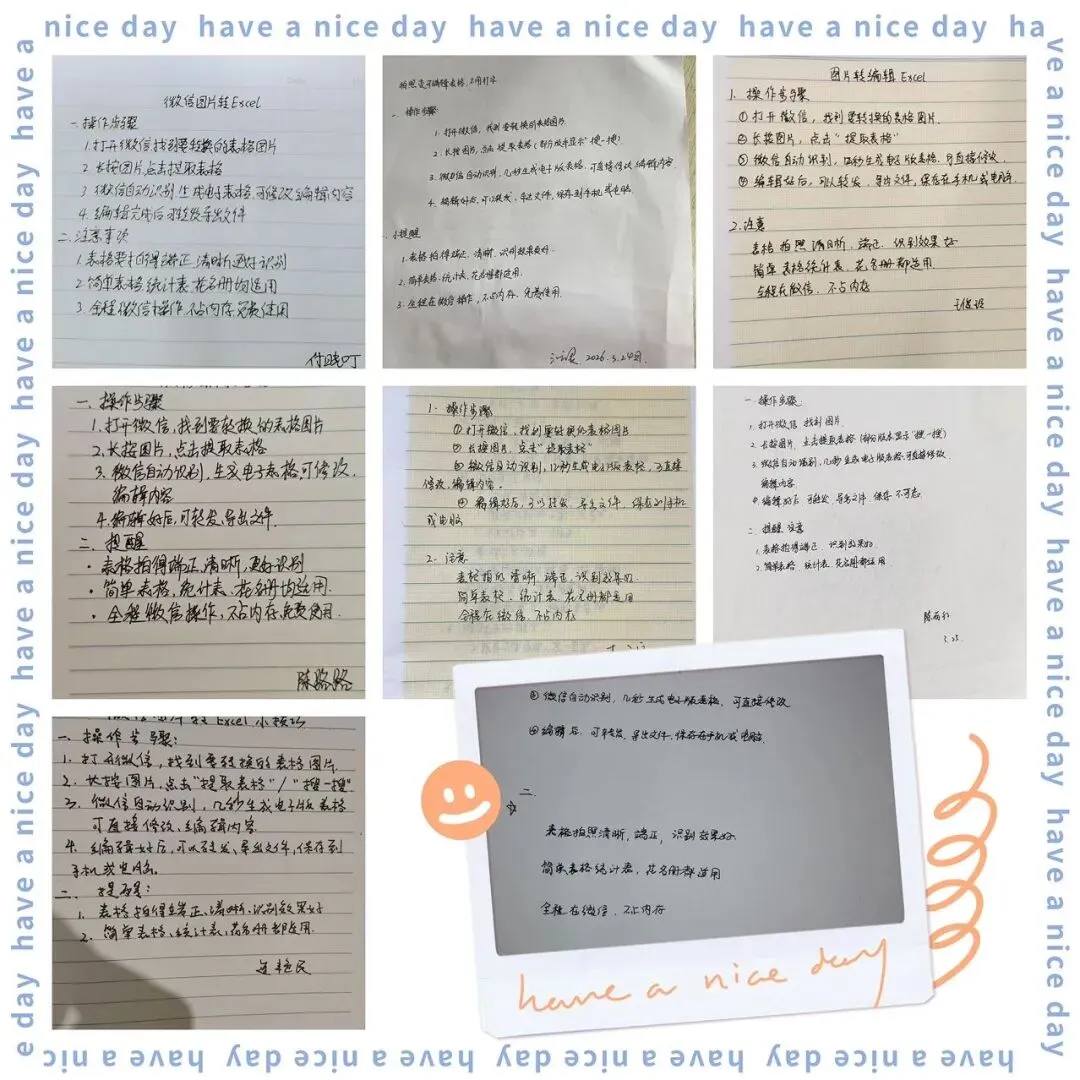 nice day have a nice day have a nice day have a nice day ha
ve a nice day have a nice day have a nice day have a nice day
have a nice day have a nice day have a nice day have a nic
e day have a nice day have a nice day have a nice day have a
微信图片转Excel
一.操作步骤
1.打开微信找到要转换的表格图片
2.长按图片点击提取表格
3.微信自动识别生成电子表格,可修改编辑内容
4.编辑完成后可转发导出文件
二.注意事项
1.表格要拍得端正,清晰更好识别
2.简单表格统计表花名册均适用
3.全程微信操作,不占内存免费使用
一.操作步骤:
1.打开微信,找到要转换的表格图片.
2.长按图片,点击提取表格(部分版本显示"搜一搜)
3.微信自动识别,几秒生成电子版表格,可直接修改、编辑内容.
4.编辑好后,可以转发、导出文件,保存到手机或电脑.
提醒
1.表格拍得端正、清晰,识别效果更好.
2.简单表格、统计表、花名册都适用.
3.全程在微信操作,不占内存、免费使用.
2026.3.24
图片转编辑Excel
1.操作步骤
①打开微信,找到要转换的表格图片.
②长按图片,点击"提取表格"
③微信自动识别,几秒生成电子版表格,可直接修改.
④编辑好后,可以转发,导出文件,保存在手机或电脑.
2.注意
表格拍照清晰,端正,识别效果好
简单表格统计表,花名册都适用
全程在微信,不占内存
一、操作步骤
1.打开微信,找到要转换的表格图片
2.长按图片,点击提取表格
3.微信自动识别,生成电子表格,可修改、
编辑内容
4.编辑好后,可转发、导出文件.
二.提醒
·表格拍得端正,清晰,更好识别
·简单表格,统计表、花名册均适用.
·全程微信操作,不占内存,免费使用.
陈路路
1.操作步骤
①打开微信,找到要转换的表格图片
②长按图片,点击"提取表格"
③微信自动识别,几秒生成电子版表格,可直接
修改,编辑内容。
④编辑好后,可以转发,导出文件,保存到手机
或电脑
2.注意
表格拍的清晰 端正,识别效果好
简单表格,统计表 花名册都适用
全程在微信,不占内存
一.操作步骤.
1.打开微信 找到图片.
2.长按图片,点击提取表格(部分版本显示"搜一搜)
3.微信自动识别,几秒生成电子版表格,可直接修改、
编辑内容
4.编辑好后 可转发 导出文件 保存
二 提醒 注意
1.表格拍得端正 识别效果好
2.简单表格 统计表 花名册都适用
3.25.
一.操作步骤:
1.打开微信,找到要转换的表格图片
2.长按图片,点击"提取表格"/"搜一搜"
3.微信自动识别,几秒生成电子版表格
可直接修改、编辑内容
4.编辑好后,可以转发、导出文件,保存到
手机或电脑.
二.提醒:
1.表格拍得端正、清晰、识别效果好
2.简单表格、统计表、花名册都适用.
③微信自动识别,几秒生成电子版表格,可直接修改
④编辑后,可转发,导出文件,保存在手机或电脑.
二.
表格拍照清晰,端正,识别效果好
简单表格统计表,花名册都适用
全程在微信.不占内存
have a nice day